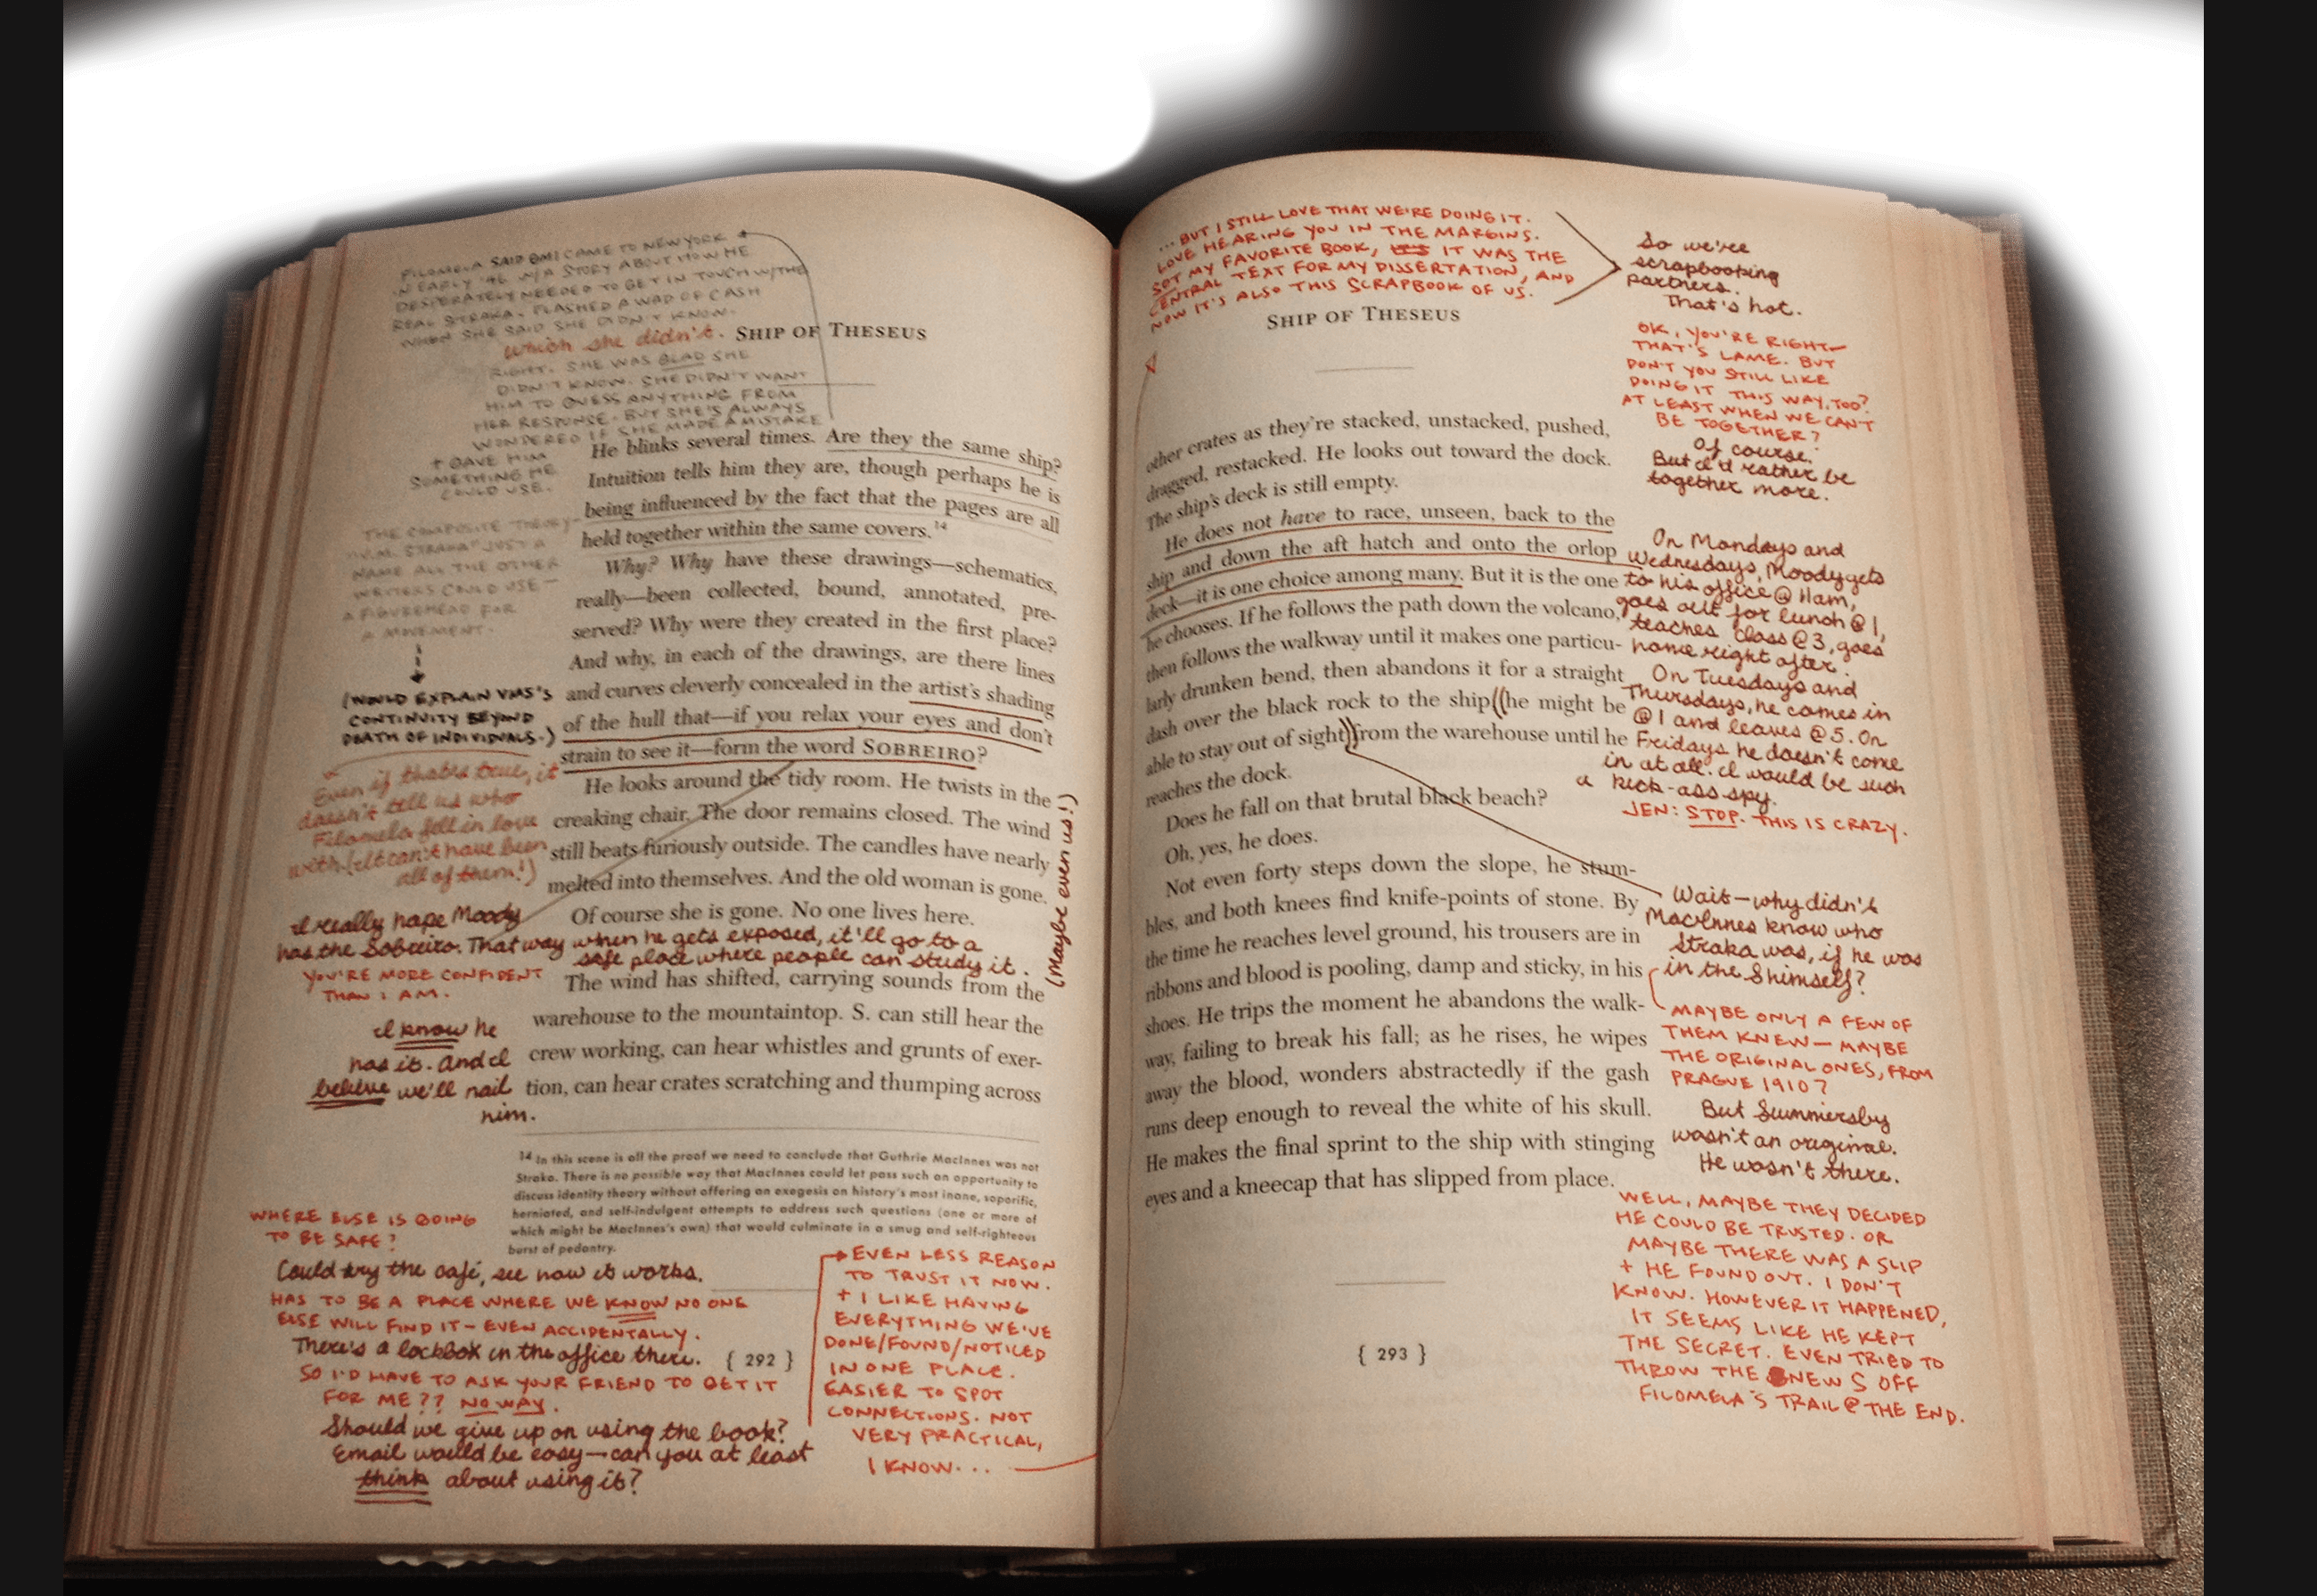 FILOMELA SAID EMI CAME TO NEW YORK
IN EARLY '46 W/A STORY ABOUT HOW HE
DESPERATELY NEEDED TO GET IN TOUCH W/THE
REAL STRAKA. FLASHED A WAD OF CASH
WHEN SHE SAID SHE DIDN'T KNOW.
which she didn't.
RIGHT. SHE WAS GLAD SHE
DIDN'T KNOW. SHE DIDN'T WANT
HIM TO GUESS ANYTHING FROM
HER RESPONSE. BUT SHE'S ALWAYS
WONDERED IF SHE MADE A MISTAKE
+ GAVE HIM
SOMETHING HE
COULD USE.
SHIP OF THESEUS
He blinks several times. Are they the same ship?
Intuition tells him they are, though perhaps he is
being influenced by the fact that the pages are all
held together within the same covers.14
Why? Why have these drawings—schematics,
really—been collected, bound, annotated, pre-
served? Why were they created in the first place?
And why, in each of the drawings, are there lines
and curves cleverly concealed in the artist's shading
of the hull that—if you relax your eyes and don't
strain to see it—form the word SOBREIRO?
He looks around the tidy room. He twists in the
creaking chair. The door remains closed. The wind
still beats furiously outside. The candles have nearly
melted into themselves. And the old woman is gone.
Of course she is gone. No one lives here.
The wind has shifted, carrying sounds from the
warehouse to the mountaintop. S. can still hear the
crew working, can hear whistles and grunts of exer-
tion, can hear crates scratching and thumping across
THE COMPOSITE THEORY—
"V.M. STRAKA" JUST A
NAME ALL THE OTHER
WRITERS COULD USE—
A FIGUREHEAD FOR
A MOVEMENT.
(WOULD EXPLAIN VMS'S
CONTINUITY BEYOND
DEATH OF INDIVIDUALS.)
Even if that's true, it
doesn't tell us who
Filomela fell in love
with (it can't have been
all of them!)
(Maybe even us!)
I really hope Moody
has the Sobreiro. That way when he gets exposed, it'll go to a
safe place where people can study it.
YOU'RE MORE CONFIDENT
THAN I AM.
I know he
has it. And I
believe we'll nail
him.
14 In this scene is all the proof we need to conclude that Guthrie MacInnes was not
Straka. There is no possible way that MacInnes could let pass such an opportunity to
discuss identity theory without offering an exegesis on history's most inane, soporific,
herniated, and self-indulgent attempts to address such questions (one or more of
which might be MacInnes's own) that would culminate in a smug and self-righteous
burst of pedantry.
WHERE ELSE IS GOING
TO BE SAFE?
Could try the café, see how it works.
HAS TO BE A PLACE WHERE WE KNOW NO ONE
ELSE WILL FIND IT—EVEN ACCIDENTALLY.
There's a lockbox in the office there.
SO I'D HAVE TO ASK YOUR FRIEND TO GET IT
FOR ME?? NO WAY.
Should we give up on using the book?
Email would be easy—can you at least
think about using it?
{ 292 }
EVEN LESS REASON
TO TRUST IT NOW.
+ I LIKE HAVING
EVERYTHING WE'VE
DONE/FOUND/NOTICED
IN ONE PLACE.
EASIER TO SPOT
CONNECTIONS. NOT
VERY PRACTICAL,
I KNOW...
...BUT I STILL LOVE THAT WE'RE DOING IT.
LOVE HEARING YOU IN THE MARGINS.
SOT MY FAVORITE BOOK, IT WAS THE
CENTRAL TEXT FOR MY DISSERTATION, AND
NOW IT'S ALSO THIS SCRAPBOOK OF US.
So we're
scrapbooking
partners.
That's hot.
OK, YOU'RE RIGHT—
THAT'S LAME. BUT
DON'T YOU STILL LIKE
DOING IT THIS WAY, TOO?
AT LEAST WHEN WE CAN'T
BE TOGETHER?
Of course.
But I'd rather be
together more.
SHIP OF THESEUS
other crates as they're stacked, unstacked, pushed,
dragged, restacked. He looks out toward the dock.
The ship's deck is still empty.
He does not have to race, unseen, back to the
ship and down the aft hatch and onto the orlop
deck—it is one choice among many. But it is the one
he chooses. If he follows the path down the volcano,
then follows the walkway until it makes one particu-
larly drunken bend, then abandons it for a straight
dash over the black rock to the ship (he might be
able to stay out of sight) from the warehouse until he
reaches the dock.
Does he fall on that brutal black beach?
Oh, yes, he does.
Not even forty steps down the slope, he stum-
bles, and both knees find knife-points of stone. By
the time he reaches level ground, his trousers are in
ribbons and blood is pooling, damp and sticky, in his
shoes. He trips the moment he abandons the walk-
way, failing to break his fall; as he rises, he wipes
away the blood, wonders abstractedly if the gash
runs deep enough to reveal the white of his skull.
He makes the final sprint to the ship with stinging
eyes and a kneecap that has slipped from place.
On Mondays and
Wednesdays, Moody gets
to his office @ 11am,
goes out for lunch @ 1,
teaches class @ 3, goes
home right after.
On Tuesdays and
Thursdays, he comes in
@ 1 and leaves @ 5. On
Fridays he doesn't come
in at all. I would be such
a kick-ass spy.
JEN: STOP. THIS IS CRAZY.
Wait—why didn't
MacInnes know who
Straka was, if he was
in the S himself?
MAYBE ONLY A FEW OF
THEM KNEW—MAYBE
THE ORIGINAL ONES, FROM
PRAGUE 1910?
But Summersby
wasn't an original.
He wasn't there.
WELL, MAYBE THEY DECIDED
HE COULD BE TRUSTED. OR
MAYBE THERE WAS A SLIP
+ HE FOUND OUT. I DON'T
KNOW. HOWEVER IT HAPPENED,
IT SEEMS LIKE HE KEPT
THE SECRET. EVEN TRIED TO
THROW THE NEW S OFF
FILOMELA'S TRAIL @ THE END.
{ 293 }